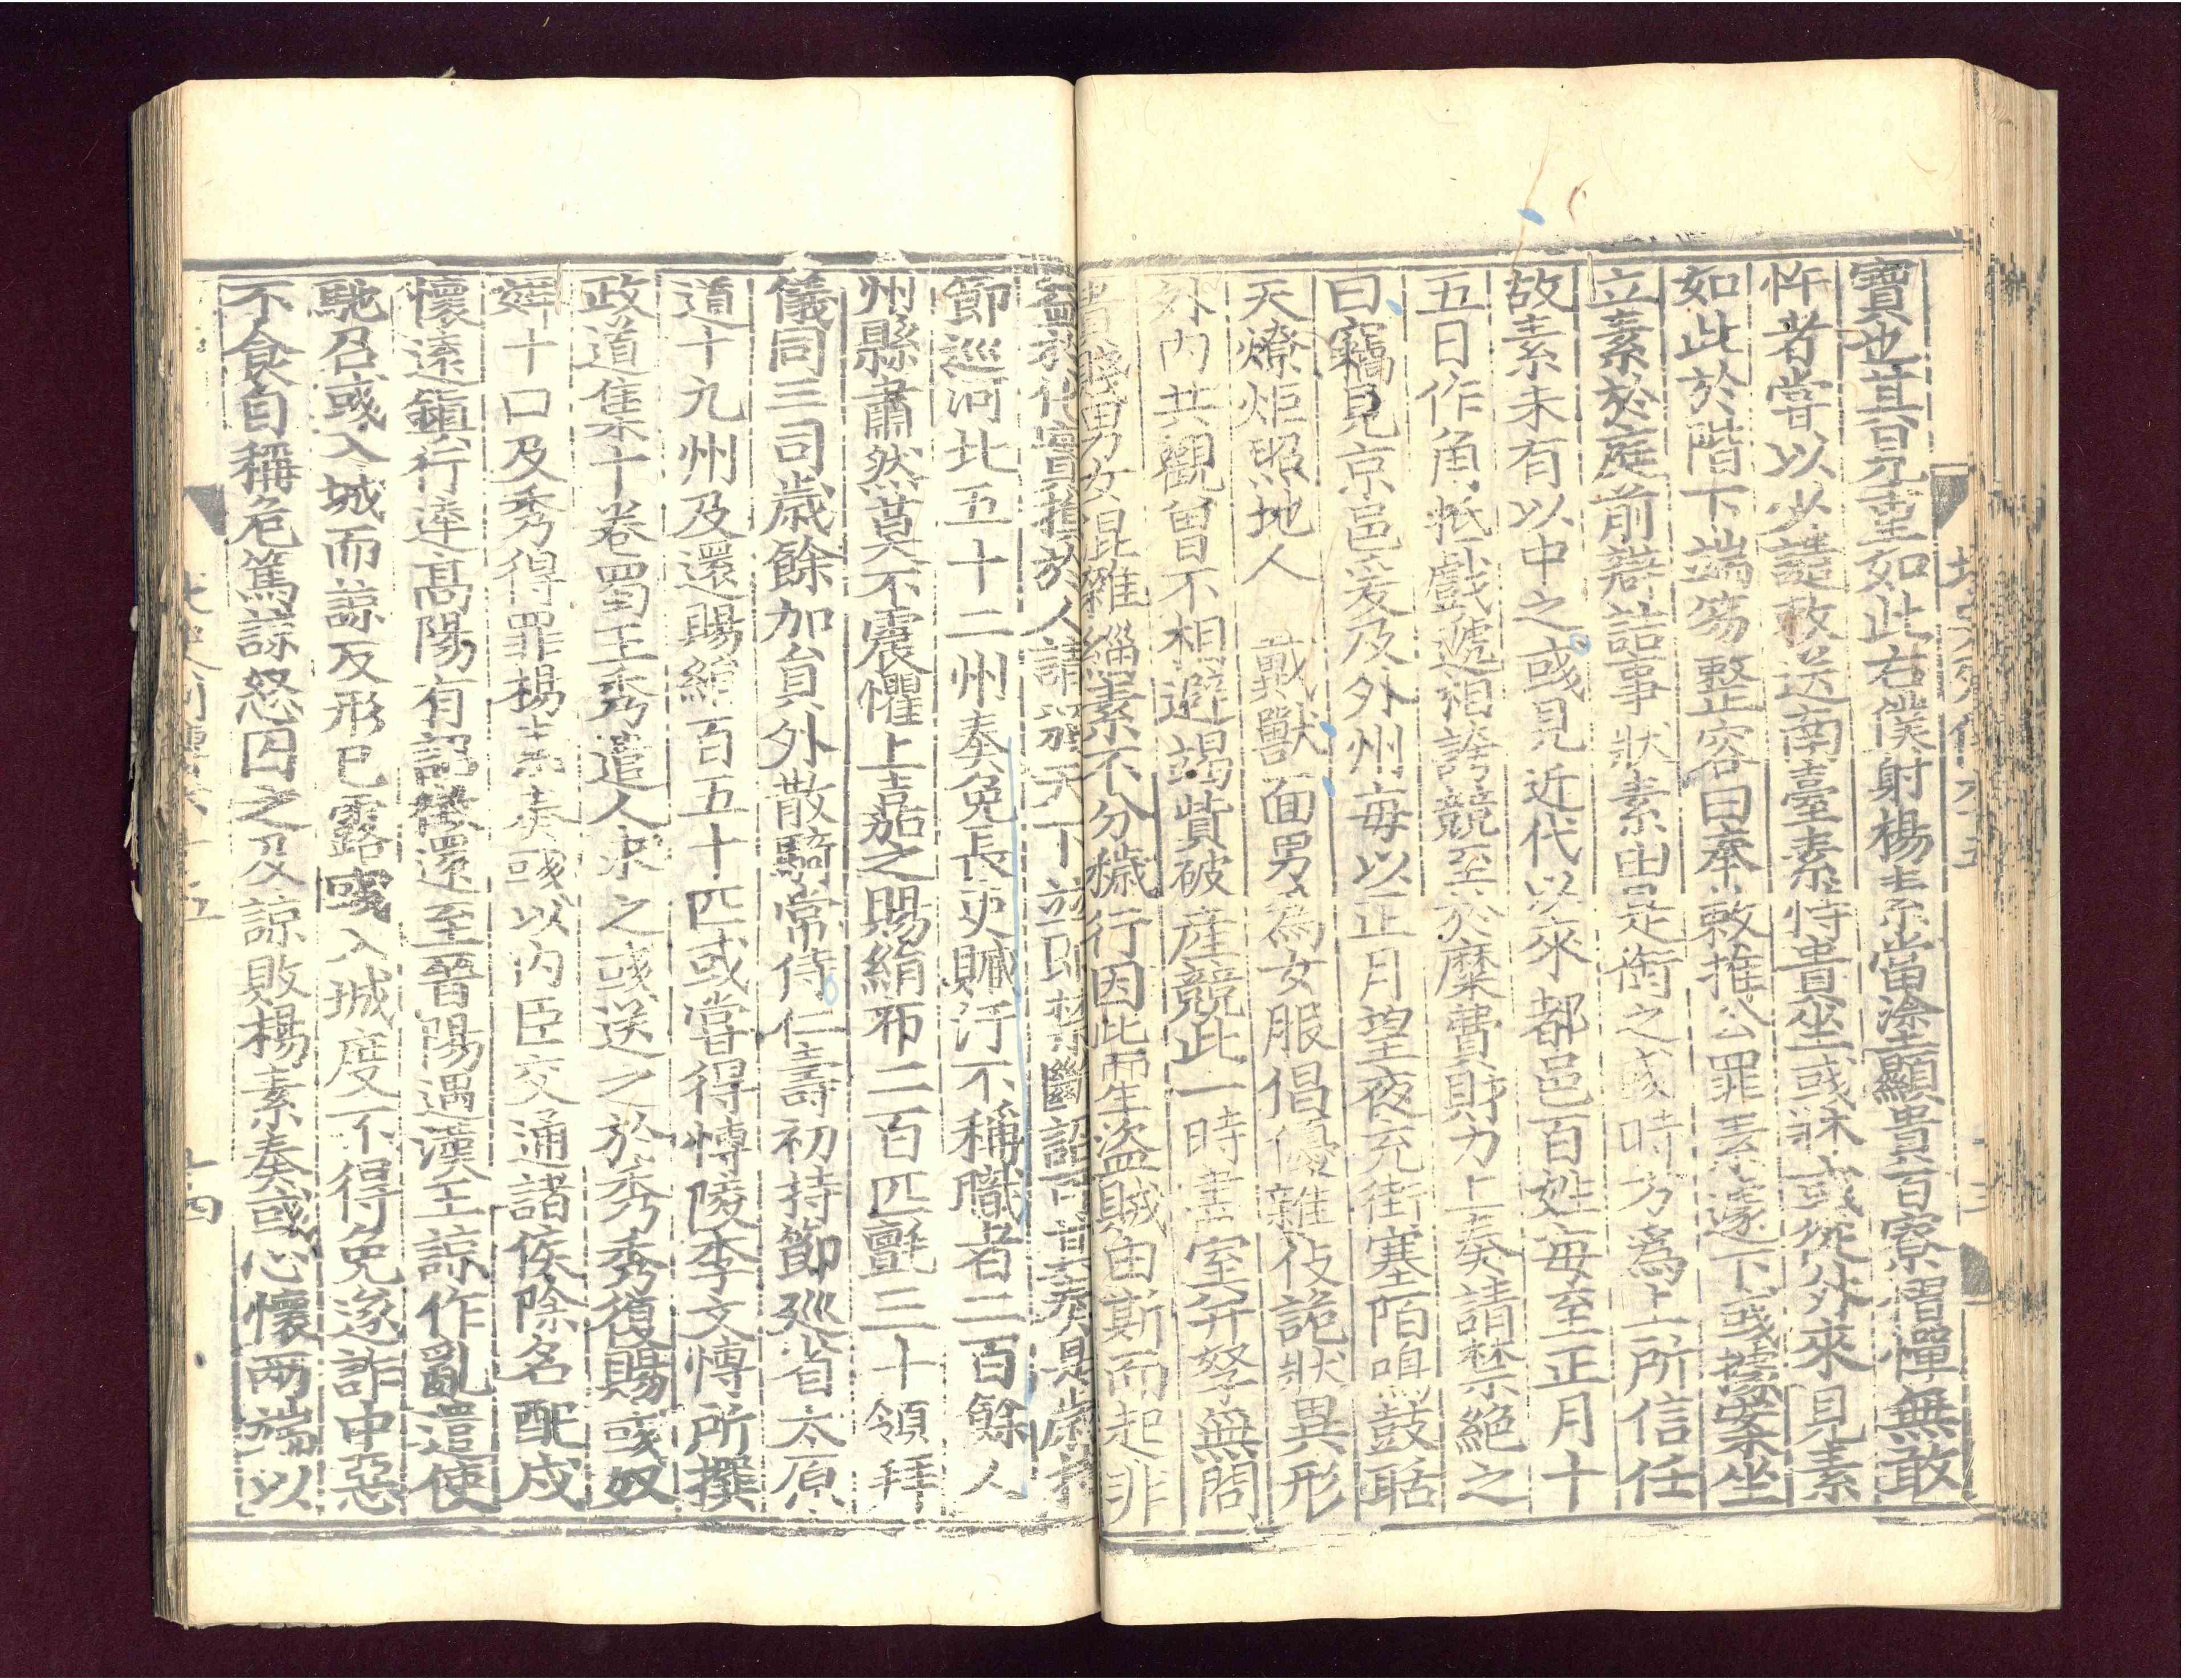 寶也其見重如此右僕射楊素當塗顯貴百寮慴憚無敢
忤者嘗以少譴敕送南臺素恃貴坐彧牀彧從外來見素
如此於階下端笏整容曰奉敕推公罪素遽下彧據案坐
立素於庭前辯詰事狀素由是銜之彧時方爲上所信任
故素未有以中之彧見近代以來都邑百姓每至正月十
五日作角抵戲遞相誇競至於糜費財力上奏請禁絕之
曰竊見京邑爰及外州每以正月望夜充街塞陌鳴鼓聒
天燎炬照地人 戴獸面男爲女服倡優雜伎詭狀異形
外內共觀曾不相避竭貲破產競此一時盡室并孥無問
貴賤男女混雜緇素不分穢行因此而生盜賊由斯而起非
益於化實損於人請頒天下並即禁斷詔可其奏是歲持
節巡河北五十二州奏免長吏贓汙不稱職者二百餘人
州縣肅然莫不震懼上嘉之賜絹布二百匹氈三十領拜
儀同三司歲餘加員外散騎常侍仁壽初持節巡省太原
道十九州及還賜絹百五十匹彧嘗得博陵李文博所撰
政道集十卷蜀王秀遣人求之彧送之於秀秀復賜彧奴
婢十口及秀得罪楊素奏彧以內臣交通諸侯除名配戍
懷遠鎮行達高陽有詔徵還至晉陽遇漢王諒作亂遣使
馳召彧入城而諒反形已露彧入城度不得免遂詐中惡
不食自稱危篤諒怒囚之及諒敗楊素奏彧心懷兩端以